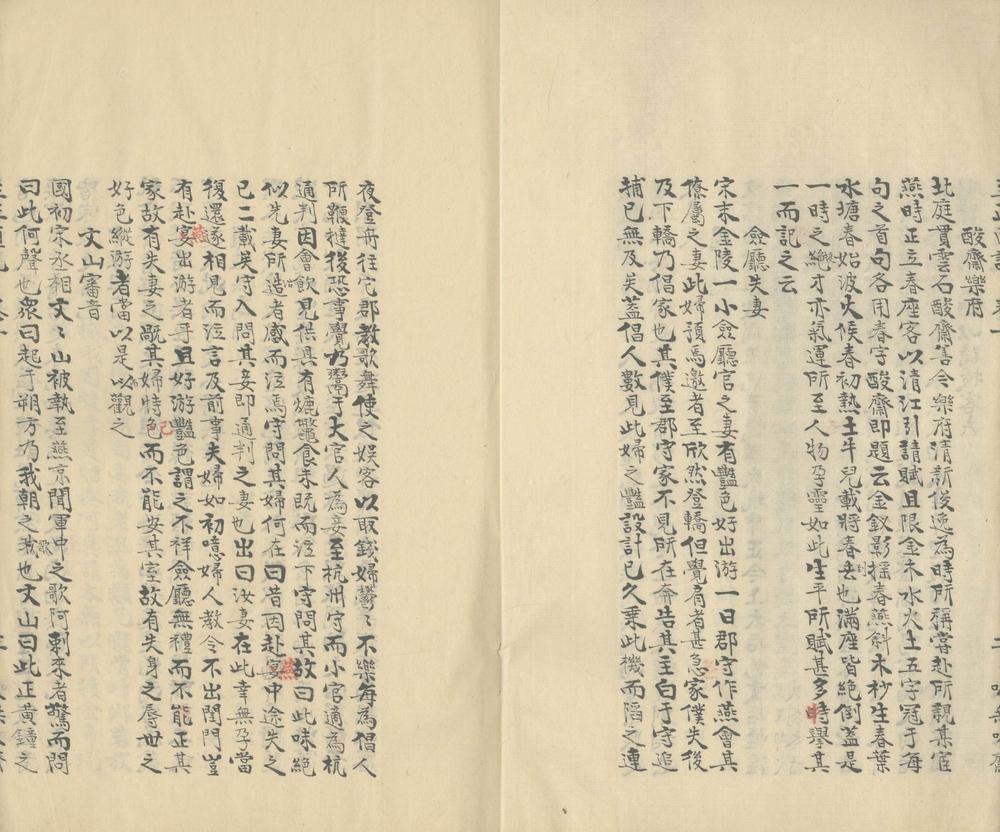 酸齋樂府
北庭貫雲石酸齋善今樂府清新俊逸為時所稱嘗赴所親某宦
燕時正立春座客以清江引請賦且限金木水火土五字冠于每
句之首句各用春字酸齋即題云金釵影搖春燕斜木杪生春葉
水塘春始波火候春初熱土牛兒載將春去也滿座皆絕倒蓋是
一時之絕才亦氣運所至人物孕靈如此生平所賦甚多時舉其
一而記之云
僉廳失妻
宋末金陵一小僉廳官之妻有豔色好出游一日郡守作燕會其
僚屬之妻此婦預焉邀者至欣然登轎但覺肩者甚急家僕失後
及下轎乃倡家也其僕至郡守家不見所在奔告其主白于守追
捕已無及矣蓋倡人數見此婦之豔設計已久乘此機而陷之連
夜登舟往它郡教歌舞使之娛客以取錢婦鬱〻不樂每為倡人
所鞭撻後恐事覺乃鬻于大官人為妾至杭州守〻而小官適為杭
通判因會飲見供具有爊鼈食未既而泣下守問其故曰此味絕
似先妻所造者感而泣焉守問其婦何在曰昔因赴宴中途失之
已二載矣守入問其妾即通判之妻也出曰汝妻在此幸無孕當
復還遂相見而泣言及前事夫婦如初噫婦人教令不出閨門豈
有赴宴出游者乎且好游豔色謂之不祥僉廳無禮而不能正其
家故有失妻之厭其婦恃色而不能安其室故有失身之辱世之
好色縱游者當以是以觀之
文山審音
國初宋丞相文〻山被執至燕京聞軍中之歌阿剌來者驚而問
曰此何聲也衆曰起于朔方乃我朝之歌也文山曰此正黃鐘之